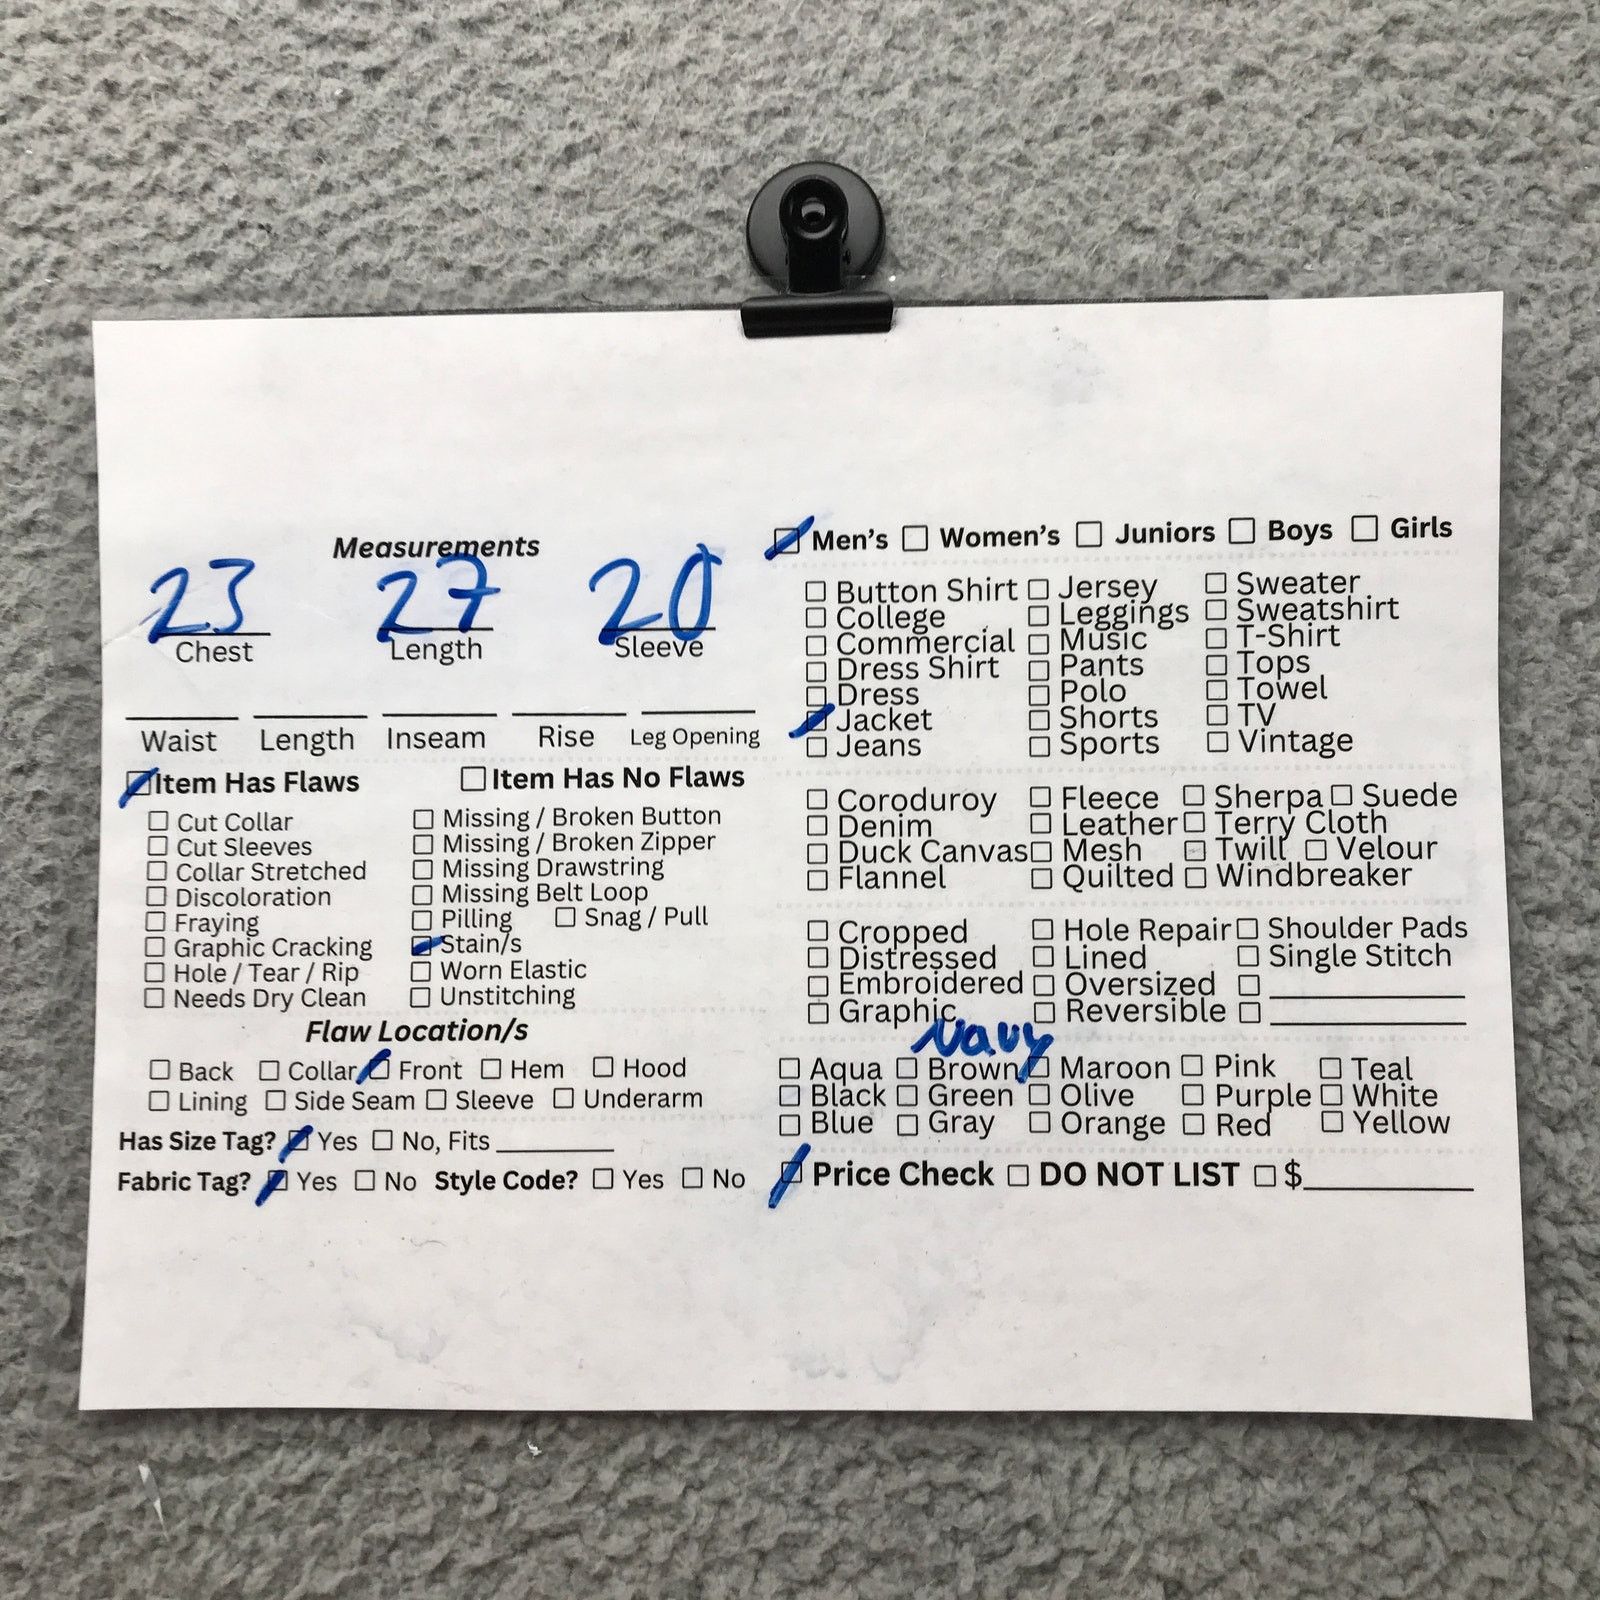 Measurements
23 27 20
Chest Length Sleeve
Waist Length Inseam Rise Leg Opening
Item Has Flaws Item Has No Flaws
Cut Collar Missing / Broken Button
Cut Sleeves Missing / Broken Zipper
Collar Stretched Missing Drawstring
Discoloration Missing Belt Loop
Fraying Pilling Snag / Pull
Graphic Cracking Stain/s
Hole / Tear / Rip Worn Elastic
Needs Dry Clean Unstitching
Flaw Location/s
Back Collar Front Hem Hood
Lining Side Seam Sleeve Underarm
Has Size Tag? Yes No, Fits
Fabric Tag? Yes No Style Code? Yes No
Men's Women's Juniors Boys Girls
Button Shirt Jersey Sweater
College Leggings Sweatshirt
Commercial Music T-Shirt
Dress Shirt Pants Tops
Dress Polo Towel
Jacket Shorts TV
Jeans Sports Vintage
Coroduroy Fleece Sherpa Suede
Denim Leather Terry Cloth
Duck Canvas Mesh Twill Velour
Flannel Quilted Windbreaker
Cropped Hole Repair Shoulder Pads
Distressed Lined Single Stitch
Embroidered Oversized
Graphic Reversible
Navy
Aqua Brown Maroon Pink Teal
Black Green Olive Purple White
Blue Gray Orange Red Yellow
Price Check DO NOT LIST $